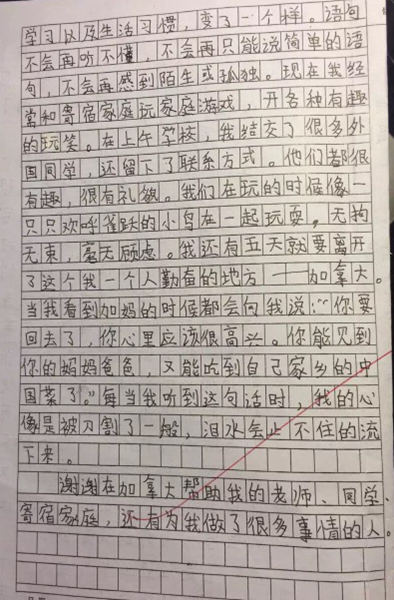 学习以及生活习惯，变了一个样。语句
不会再听不懂，不会再只能说简单的语
句，不会再感到陌生或孤独。现在我经
常和寄宿家庭玩家庭游戏，开各种有趣
的玩笑。在上午学校，我结交了很多外
国同学，还留下了联系方式。他们都很
有趣，很有礼貌。我们在玩的时候像一
只只欢呼雀跃的小鸟在一起玩耍，无拘
无束，毫无顾虑。我还有五天就要离开
了这个我一个人勤奋的地方——加拿大。
当我看到加妈的时候都会向我说：“你要
回去了，你心里应该很高兴。你能见到
你的妈妈爸爸，又能吃到自己家乡的中
国菜了。”每当我听到这句话时，我的心
像是被刀割了一般，泪水会止不住的流
下来。
谢谢在加拿大帮助我的老师、同学、
寄宿家庭，还有为我做了很多事情的人。